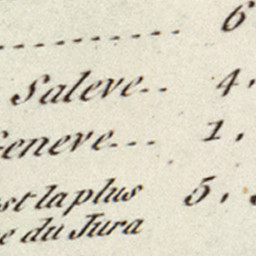 ................ 6
Saleve.. 4.
Geneve... 1.
st la plus 5.
e du Jura